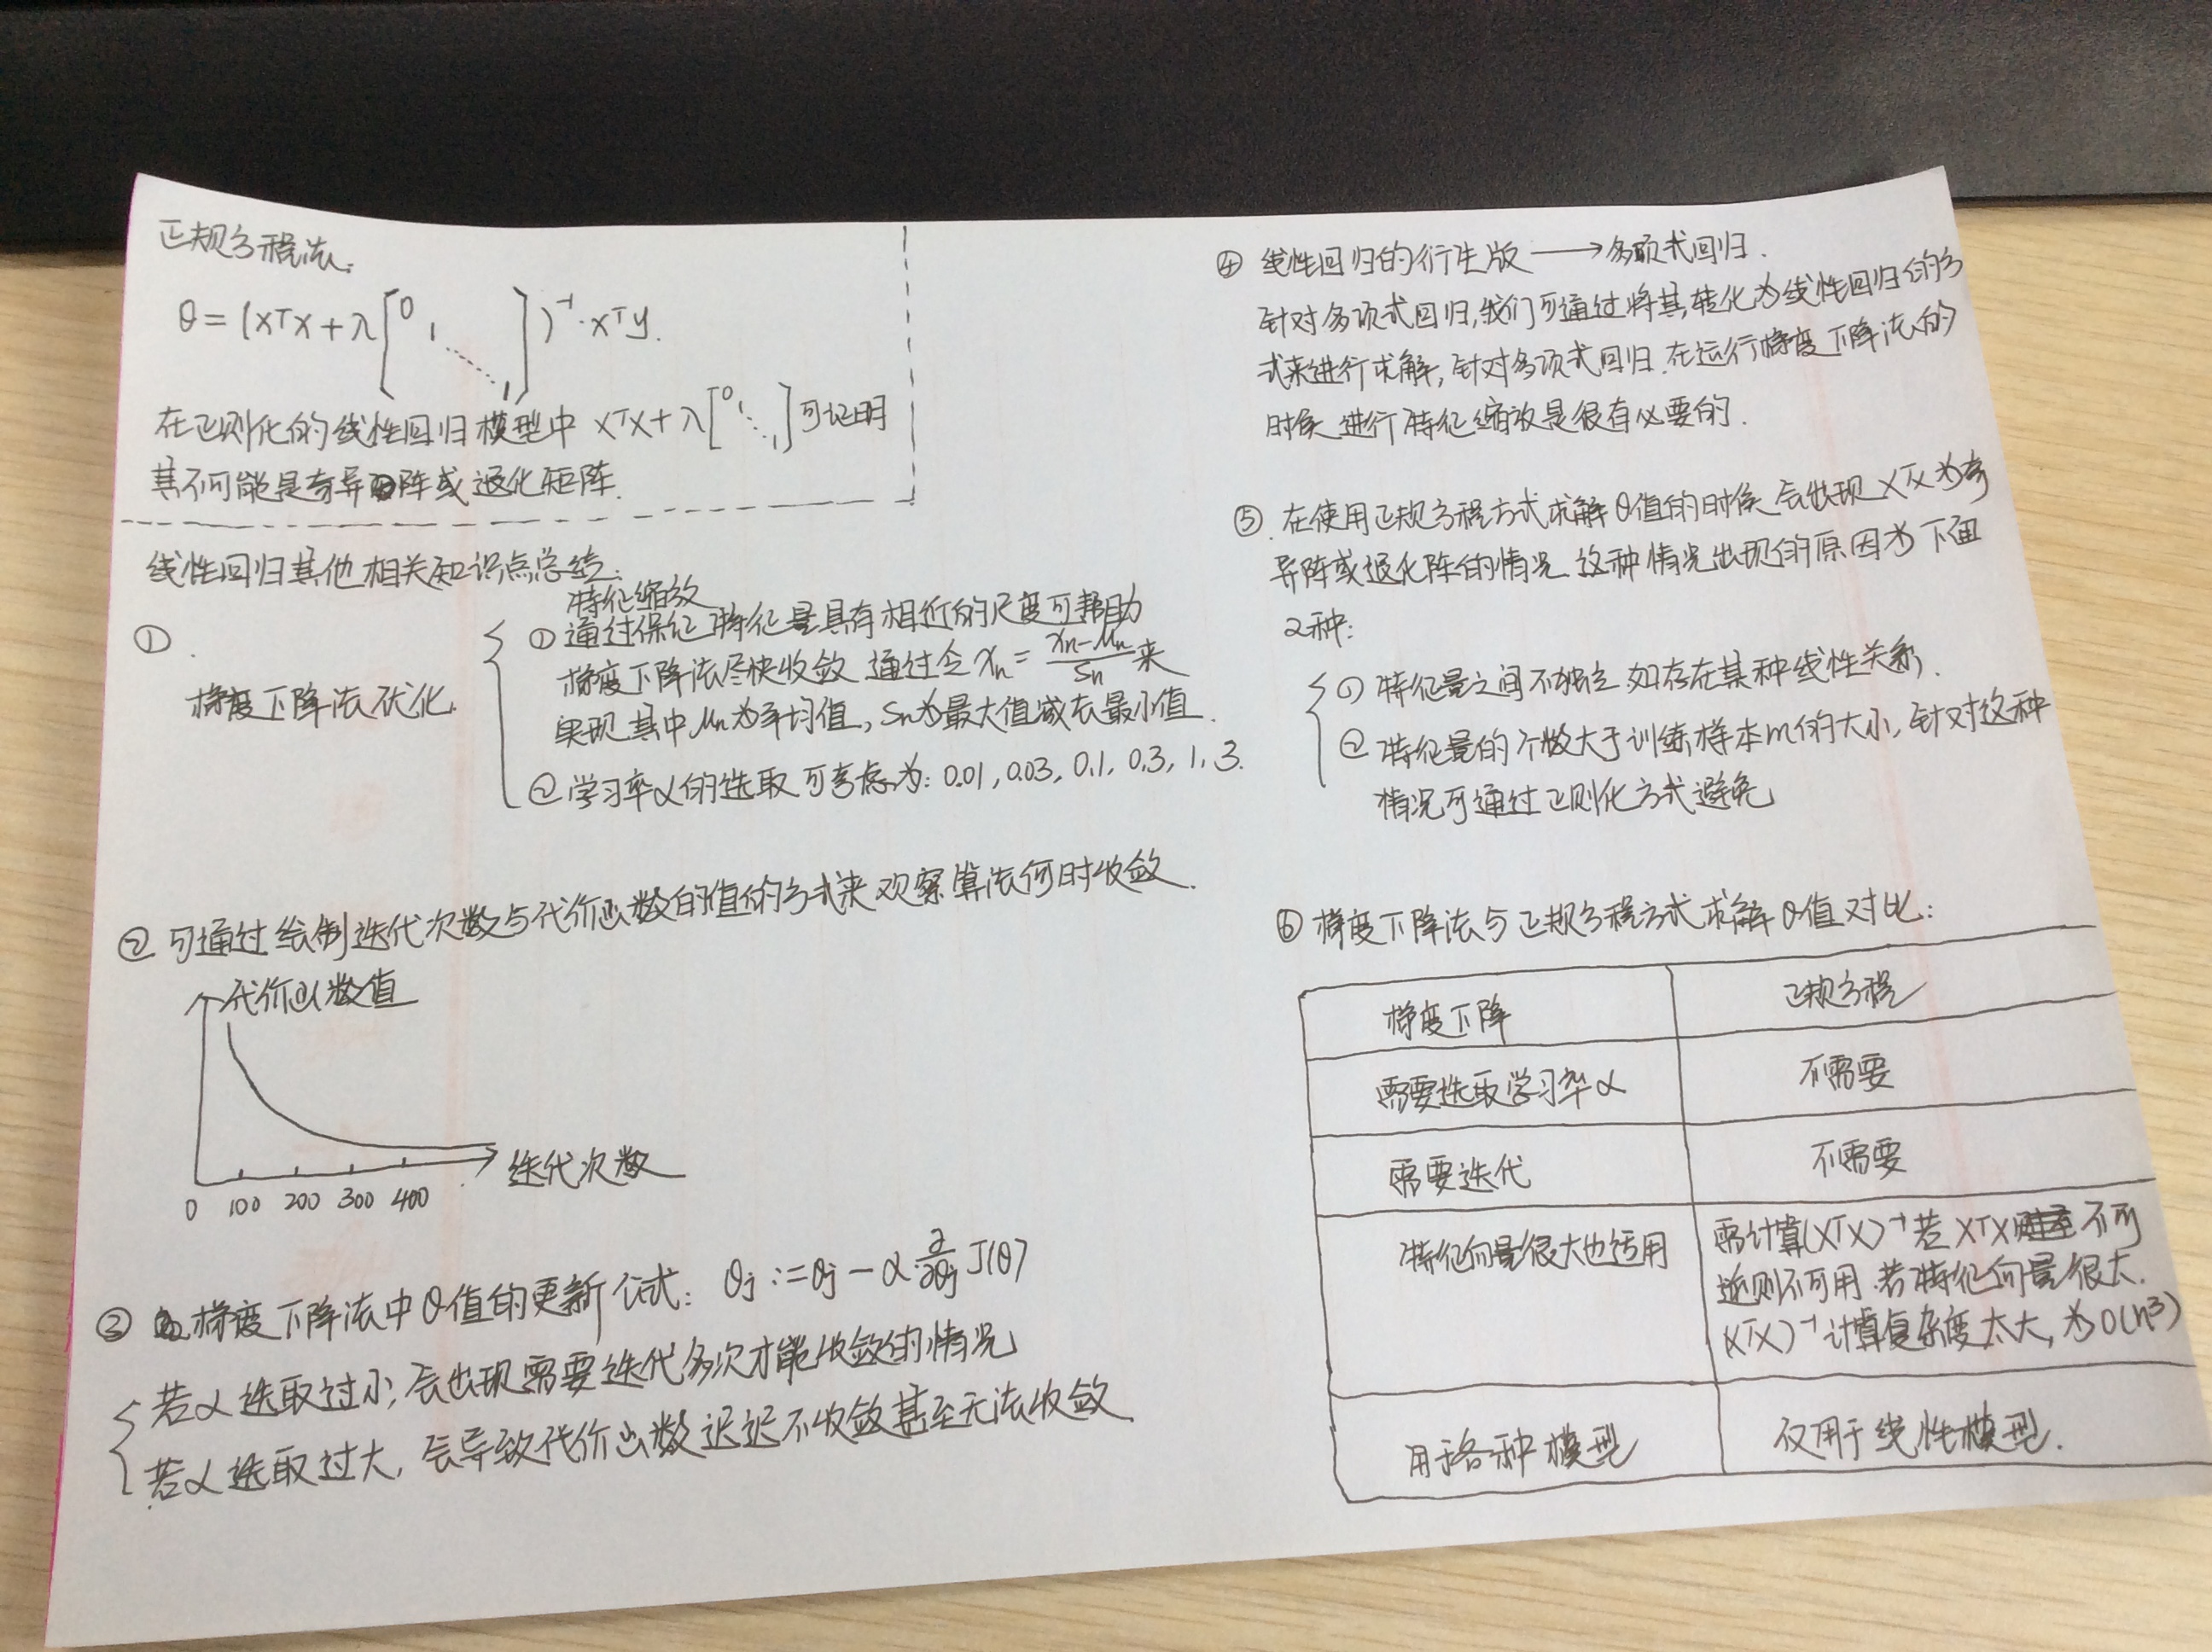 正规方程法:
θ = (XᵀX + λ[0 1 ⋱ 1])⁻¹·Xᵀy.
在正则化的线性回归模型中 XᵀX + λ[0 1 ⋱ 1] 可证明
其不可能是奇异阵或退化矩阵.
线性回归其他相关知识点总结:
①.
梯度下降法优化.
特征缩放
① 通过保征特征量具有相近的尺度可帮助
梯度下降法尽快收敛 通过令 xn = (xn-μn)/Sn 来
实现 其中μn为平均值, Sn为最大值减去最小值.
② 学习率α的选取可考虑为: 0.01, 0.03, 0.1, 0.3, 1, 3.
② 可通过绘制迭代次数与代价函数的值的方式来观察算法何时收敛.
代价函数值
迭代次数
0 100 200 300 400
③ 梯度下降法中θ值的更新公式: θj := θj - α ∂/∂θj J(θ)
若α选取过小, 会出现需要迭代多次才能收敛的情况
若α选取过大, 会导致代价函数迟迟不收敛甚至无法收敛.
④ 线性回归的衍生版 → 多项式回归.
针对多项式回归,我们可通过将其转化为线性回归的方
式来进行求解, 针对多项式回归.在运行梯度下降法的
时候 进行特征缩放是很有必要的.
⑤. 在使用正规方程方式求解θ值的时候 会出现 XᵀX 为奇
异阵或退化阵的情况. 这种情况出现的原因为下面
2种:
① 特征量之间不独立 如存在某种线性关系.
② 特征量的个数大于训练样本m的大小, 针对这种
情况可通过正则化方式避免
⑥ 梯度下降法与正规方程方式求解θ值对比:
梯度下降 正规方程
需要选取学习率α 不需要
需要迭代 不需要
特征向量很大也适用 需计算(XᵀX)⁻¹若XᵀX不可
逆则不可用.若特征向量很大.
(XᵀX)⁻¹计算复杂度太大, 为O(n³)
用于各种模型 仅用于线性模型.